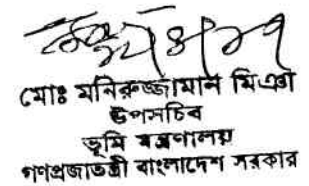 মোঃ মনিরুজ্জামান মিঞা
উপসচিব
ভূমি মন্ত্রণালয়
গণপ্রজাতন্ত্রী বাংলাদেশ সরকার